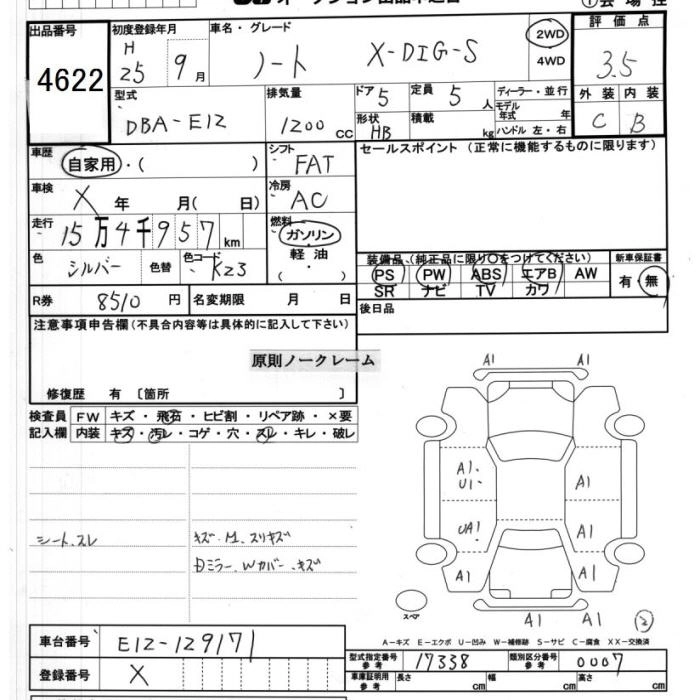 出品番号
4622
初度登録年月
H
25 9月
車名・グレード
ノート X-DIG-S
2WD
4WD
評価点
3.5
外装 内装
C B
型式
DBA-E12
排気量
1200 CC
ドア 5
定員 5 人
形状 HB
積載 kg
ディーラー・並行
モデル年式 年
ハンドル 左・右
車歴
自家用・( )
シフト
FAT
セールスポイント (正常に機能するものに限ります)
車検
X 年 月( 日)
冷房
AC
走行
15万4千957km
燃料
ガソリン
・
軽油
・
色
シルバー
色替
色コード
K23
装備品(純正品に限り○をつけてください)
PS PW ABS エアB AW
SR ナビ TV カワ
新車保証書
有・無
R券 8510円
名変期限 月 日
後日品
注意事項申告欄(不具合内容等は具体的に記入して下さい)
原則ノークレーム
修復歴 有 〔箇所 〕
検査員
記入欄
FW キズ・飛石・ヒビ割・リペア跡・×要
内装 キズ・汚レ・コゲ・穴・スレ・キレ・破レ
シート、スレ
キズ・M、スリキズ
Dミラー、Wカバー、キズ
A1 A1
A1・
U1・
A1
UA1
A1
A1
A1
A1 A1
スペア
2
A-キズ E-エクボ U-凹み W-補修跡 S-サビ C-腐食 XX-交換済
車台番号 E12-129171
登録番号 X
型式指定番号
参考
17338
類別区分番号
参考
0007
車庫証明用
参考
長さ cm
幅 cm
高さ cm